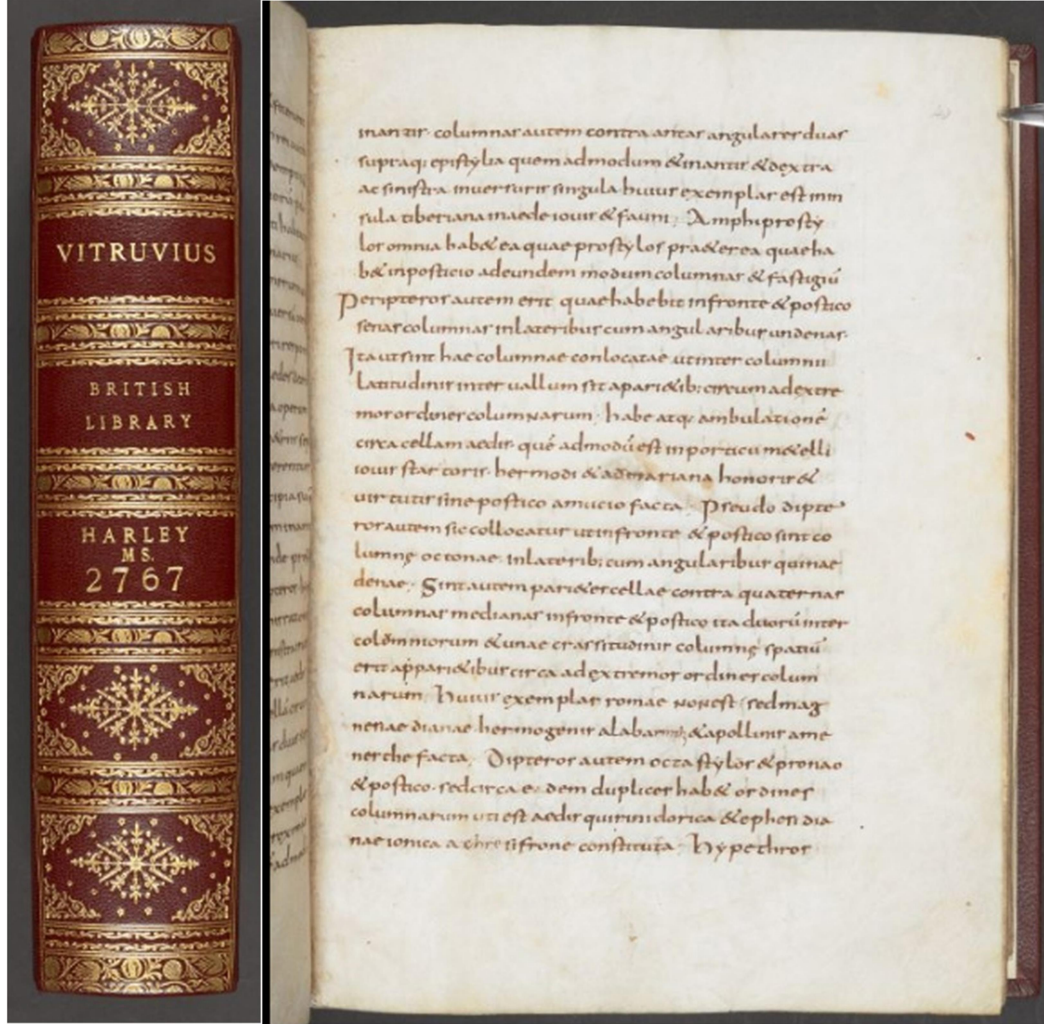 VITRUVIUS
BRITISH
LIBRARY
HARLEY
MS.
2767
inantis· columnas autem contra antas angulares duas
supraq; epistylia quem admodum & inantis & dextra
ac sinistra inversuris singula huius exemplar est inin
sula tiberiana inaede iovis & fauni· Amphiprosty
los omnia hab& ea quae prostylos pra&erea quaeha
b& inposticio adeundem modum columnas & fastigiū
Peripteros autem erit quae habebit infronte & postico
senas columnas inlateribus cum angularibus undenas·
Ita ut sint hae columnae conlocatae ut inter columnii
latitudinis inter vallum sit a pari&ib; circum ad extre
mos ordines columnarum· habe atq; ambulationē
circa cellam aedis· quē admodū est inporticu m&elli
iovis statoris· hermodi & admariana honoris &
virtutis sine postico amucio facta· Pseudo dipte
ros autem sic collocatur ut infronte & postico sint co
lumnę octonae· inlaterib; cum angularibus quinae
denae· Sint autem pari&es cellae contra quaternas
columnas medianas infronte & postico ita duorū inter
columniorum & unae crassitudinis columnę spatiū
erit apari&ibus circa ad extremos ordines colum
narum· huius exemplar romae non est· sed mag
nesiae dianae hermogenis & apollinis ame
nesthe facta· Dipteros autem octastylos & pronao
& postico· sed circa e dem duplices hab& ordines
columnarum uti est aedis quirini dorica & ephesi dia
nae ionica a chresifrone constituta· hypethros